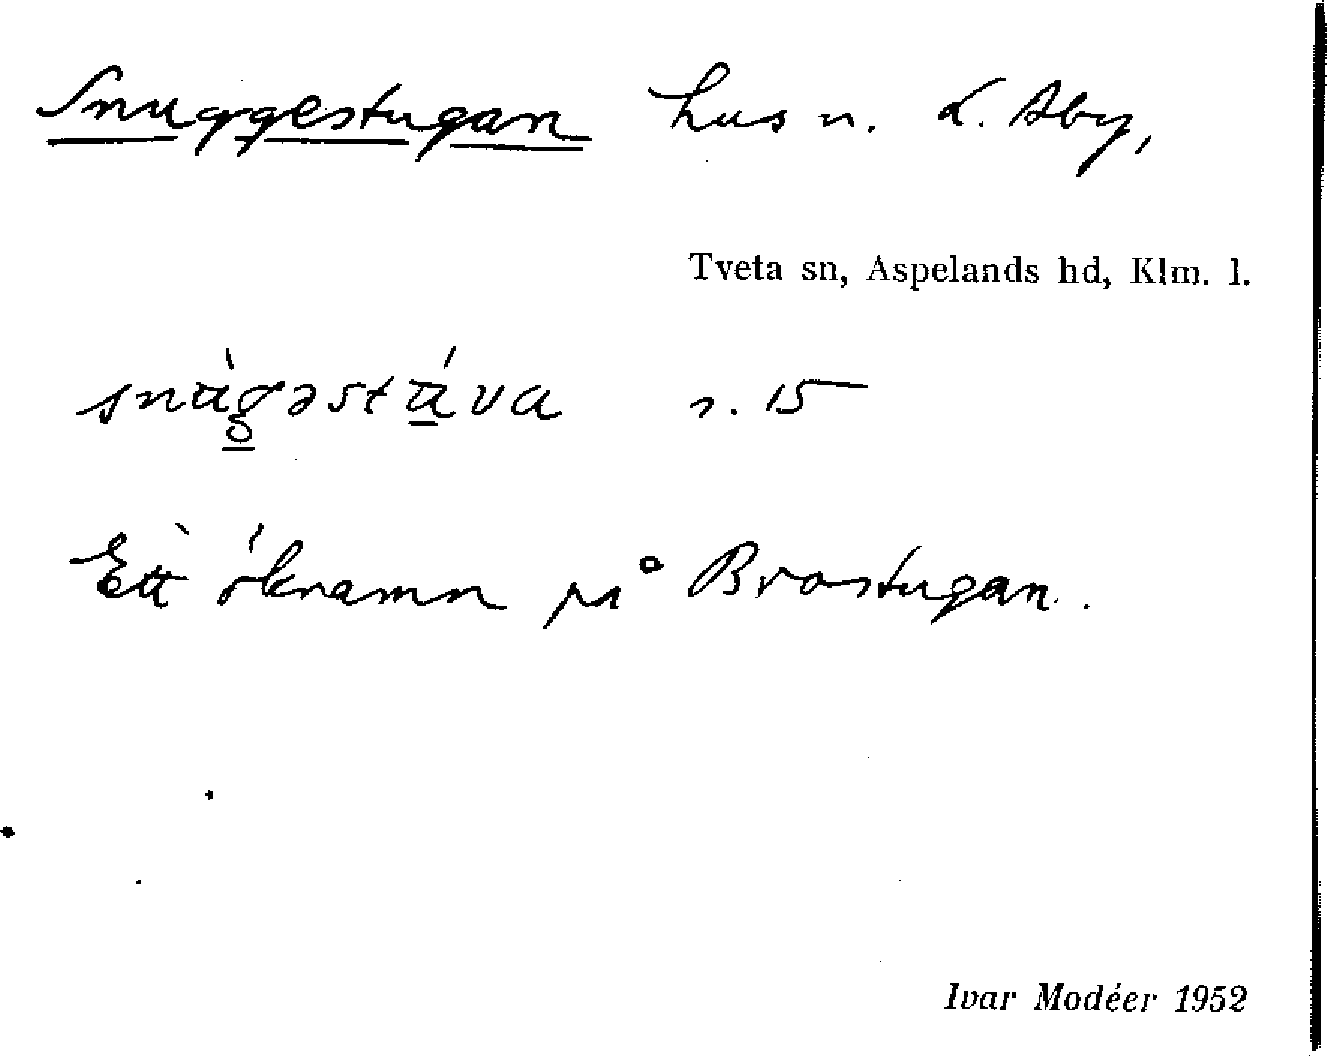 Snuggestugan hus n. L. Åby,
Tveta sn, Aspelands hd, Klm. l.
snùgəstúva s. 15
Ett öknamn på Brostugan.
Ivar Modéer 1952